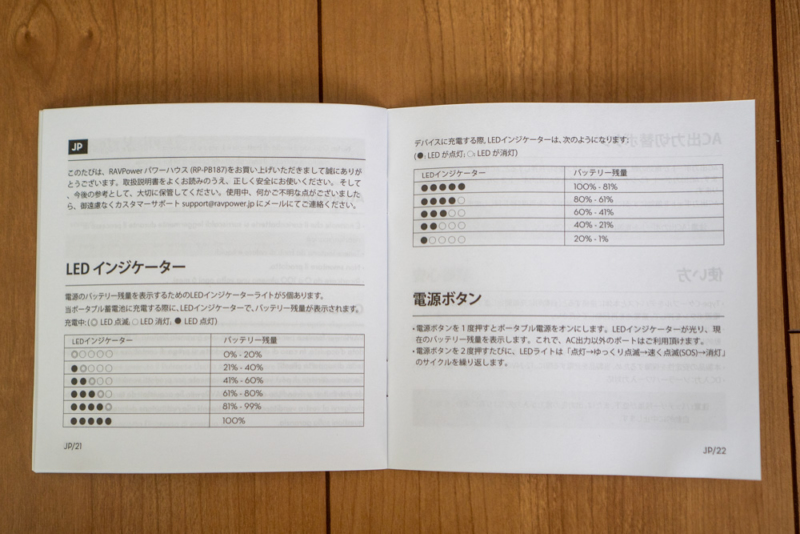 JP
このたびは、RAVPower パワーハウス (RP-PB187)をお買い上げいただきまして誠にありが
とうございます。取扱説明書をよくお読みのうえ、正しく安全にお使いください。 そして
、今後の参考として、大切に保管してください。使用中、何かご不明な点がございました
ら、御遠慮なくカスタマーサポート support@ravpower.jp にメールにてご連絡ください。
LED インジケーター
電源のバッテリー残量を表示するためのLEDインジケーターライトが5個あります。
当ポータブル蓄電池に充電する際に、LEDインジケーターで、バッテリー残量が表示されます。
充電中: (◎ LED 点滅, ○ LED 消灯, ● LED 点灯)
LEDインジケーター バッテリー残量
◎○○○○ 0% - 20%
●◎○○○ 21% - 40%
●●◎○○ 41% - 60%
●●●◎○ 61% - 80%
●●●●◎ 81% - 99%
●●●●● 100%
JP/21
デバイスに充電する際, LEDインジケーターは、次のようになります:
(●: LED が点灯; ○: LED が消灯)
LEDインジケーター バッテリー残量
●●●●● 100% - 81%
●●●●○ 80% - 61%
●●●○○ 60% - 41%
●●○○○ 40% - 21%
●○○○○ 20% - 1%
電源ボタン
•電源ボタンを 1 度押すとポータブル電源をオンにします。LEDインジケーターが光り、現
在のバッテリー残量を表示します。これで、AC出力以外のポートはご利用頂けます。
•電源ボタンを 2 度押すたびに、LEDライトは「点灯→ゆっくり点滅→速く点滅(SOS)→消灯」
のサイクルを繰り返します。
JP/22